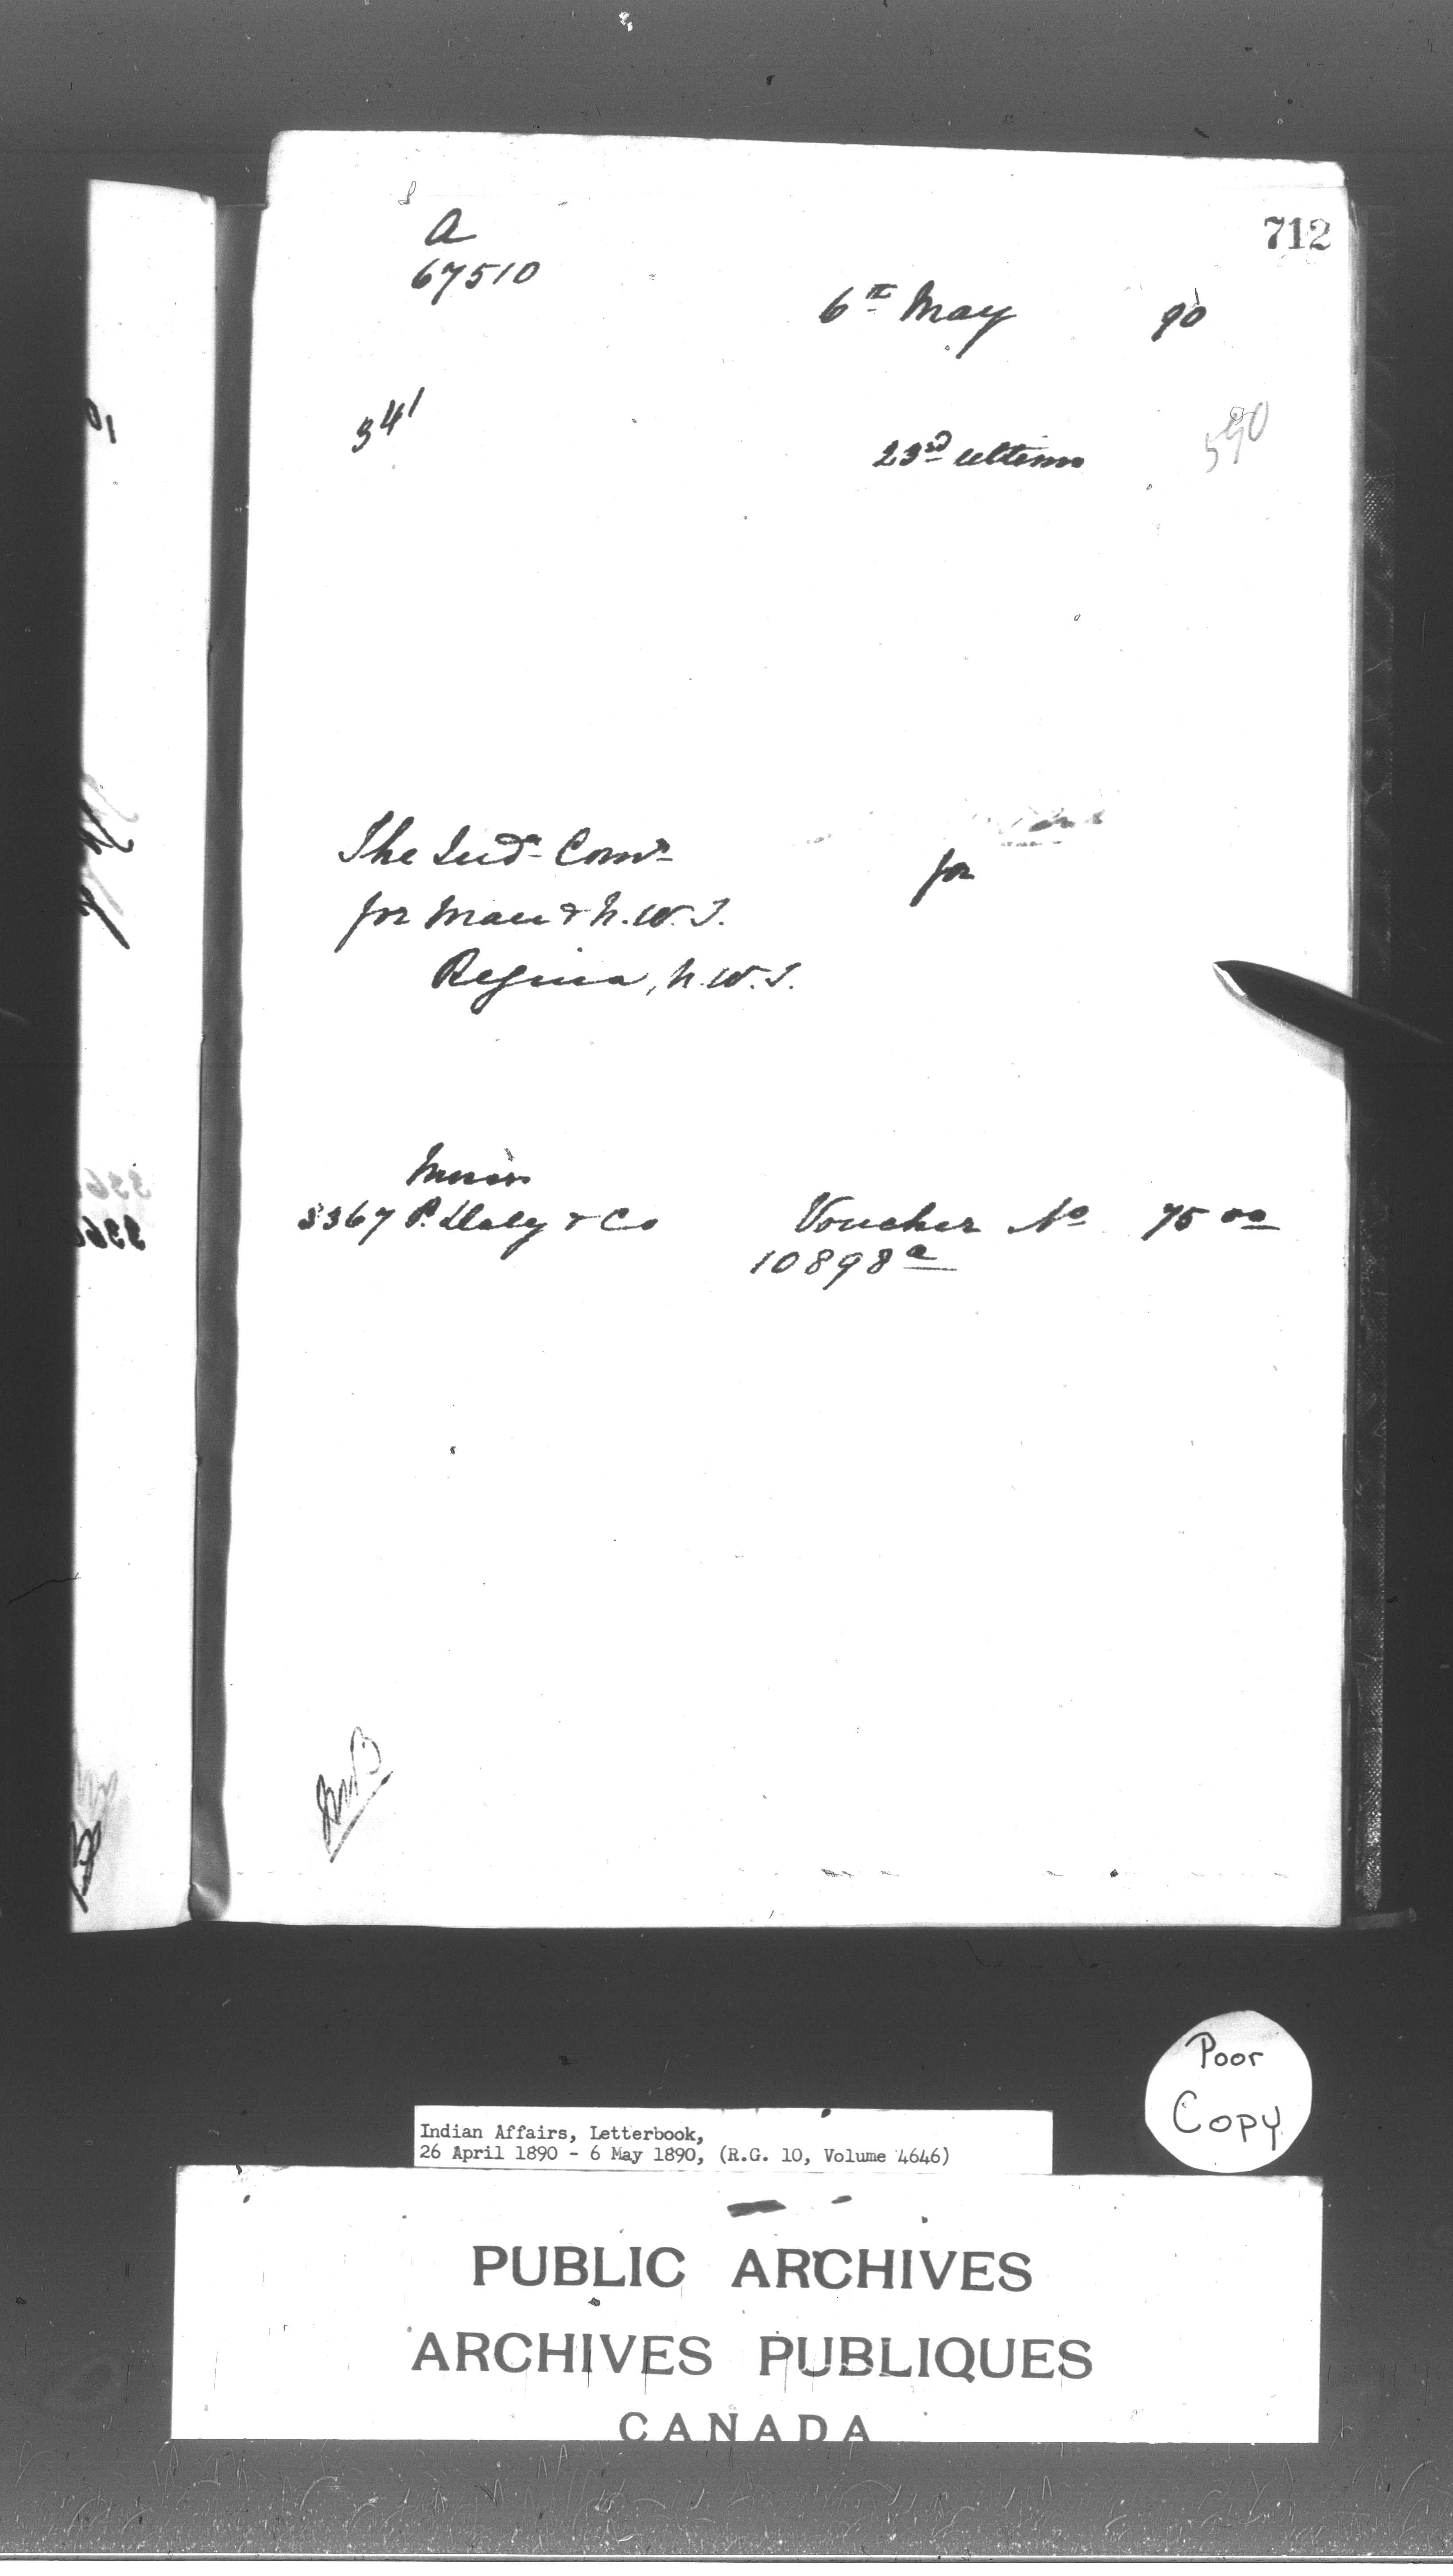 712
A
67510
6th May 90
341
23rd ultimo
590
The Indn Comr
for Man & N.W.T.
Regina, N.W.T.
for
Messrs
3367 P. Daly & Co Voucher No 75 00
10898a
Poor
Copy
Indian Affairs, Letterbook,
26 April 1890 - 6 May 1890, (R.G. 10, Volume 4646)
PUBLIC ARCHIVES
ARCHIVES PUBLIQUES
CANADA